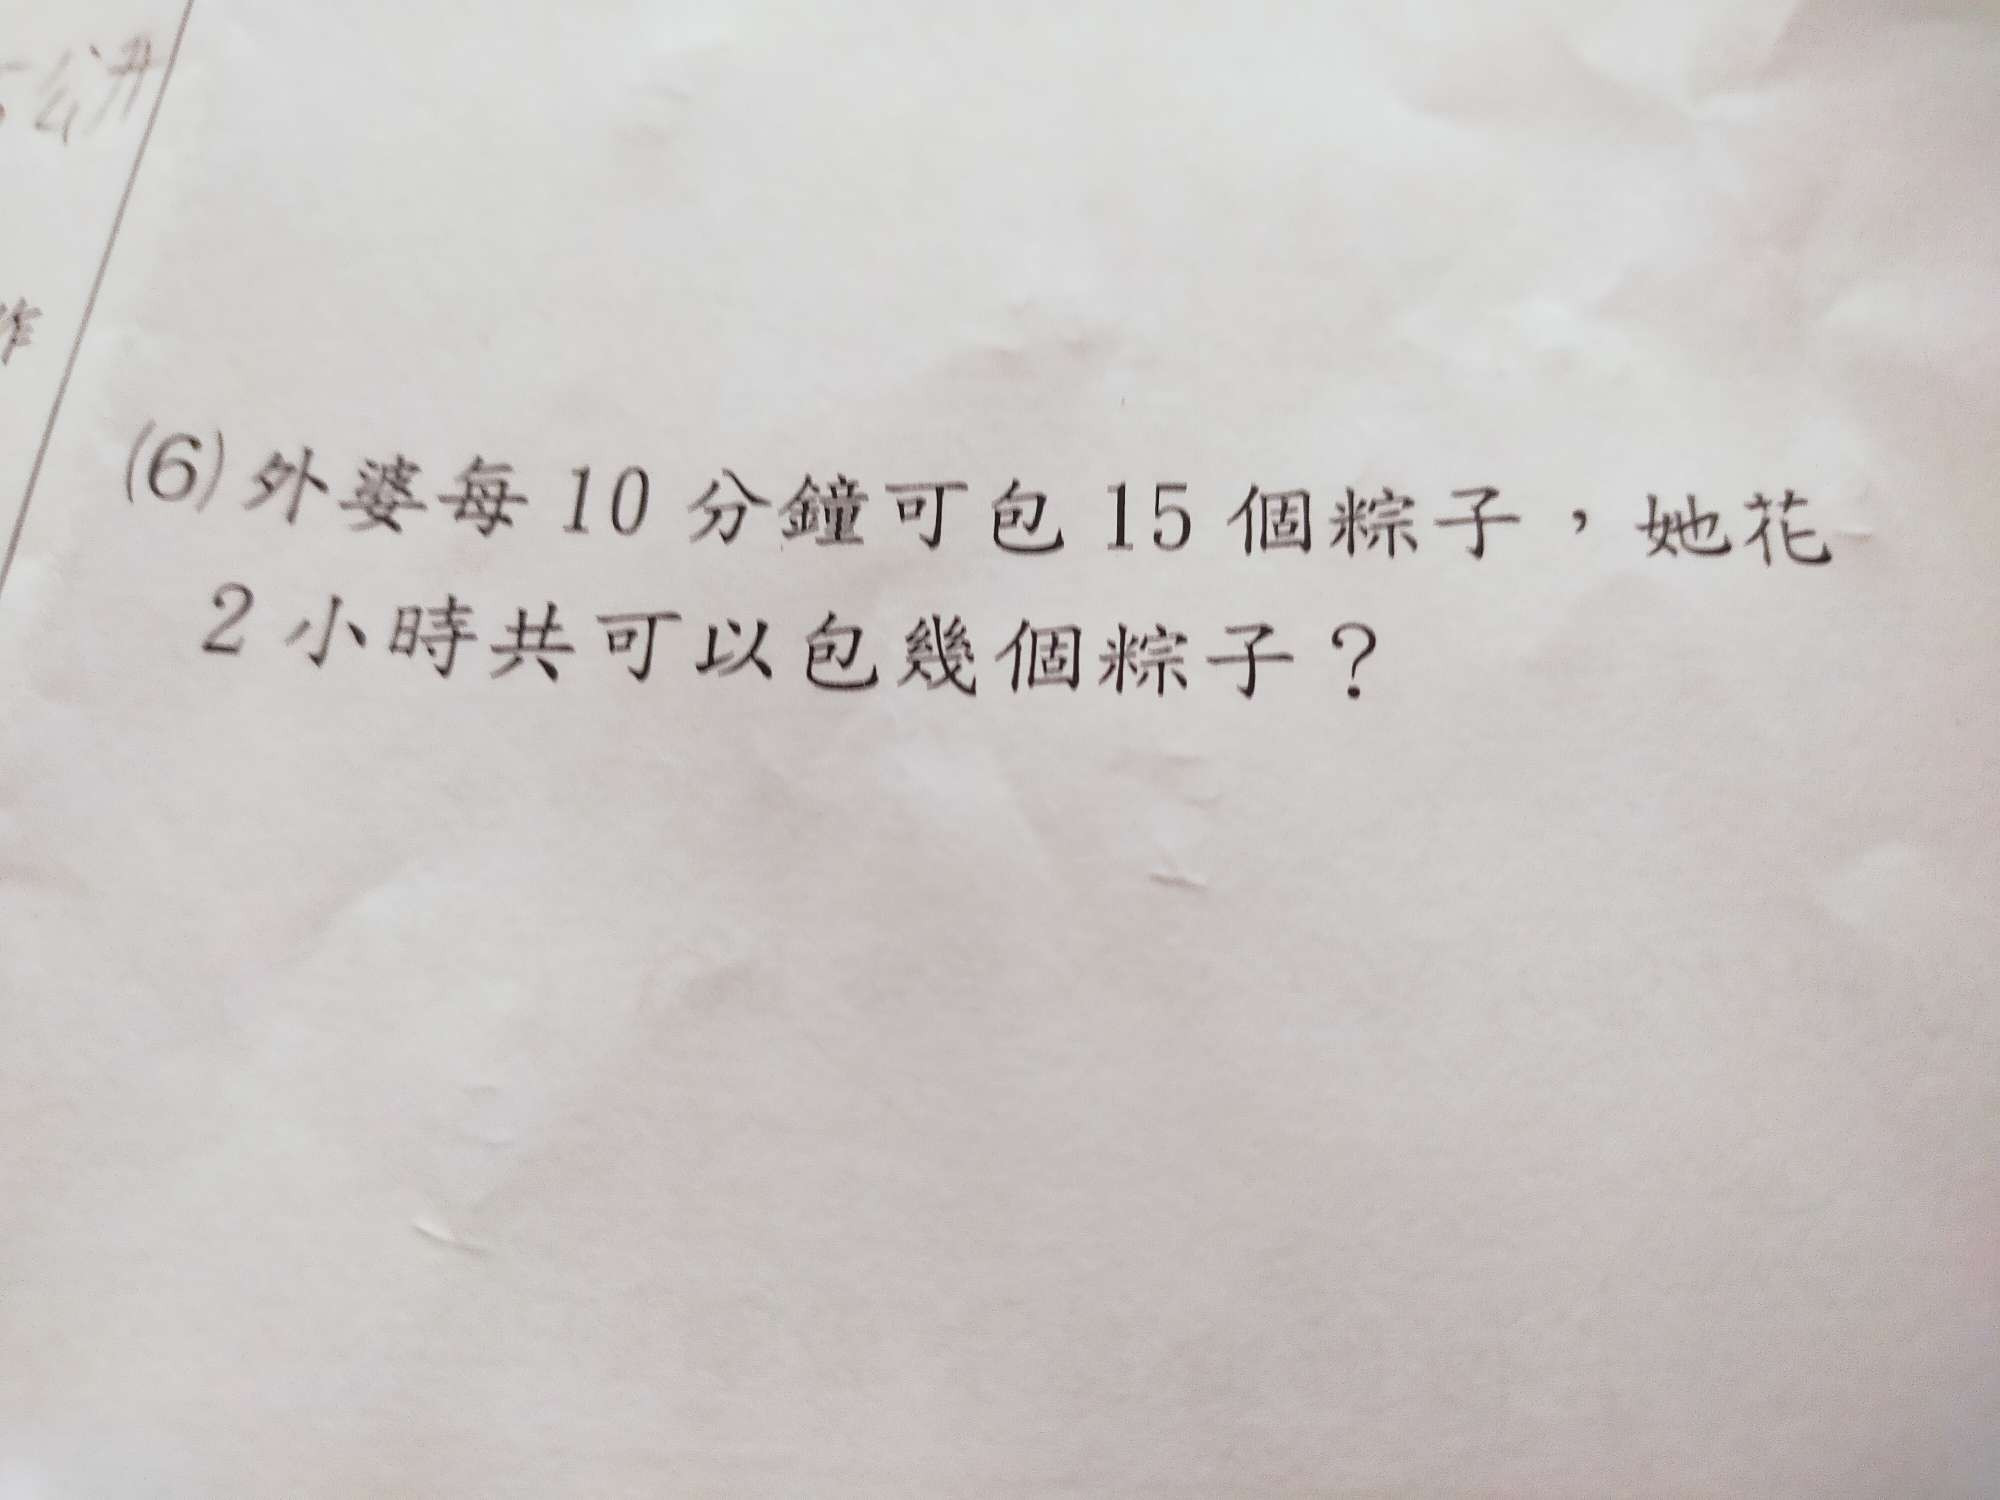 (6)外婆每 10 分鐘可包 15 個粽子，她花
2 小時共可以包幾個粽子？